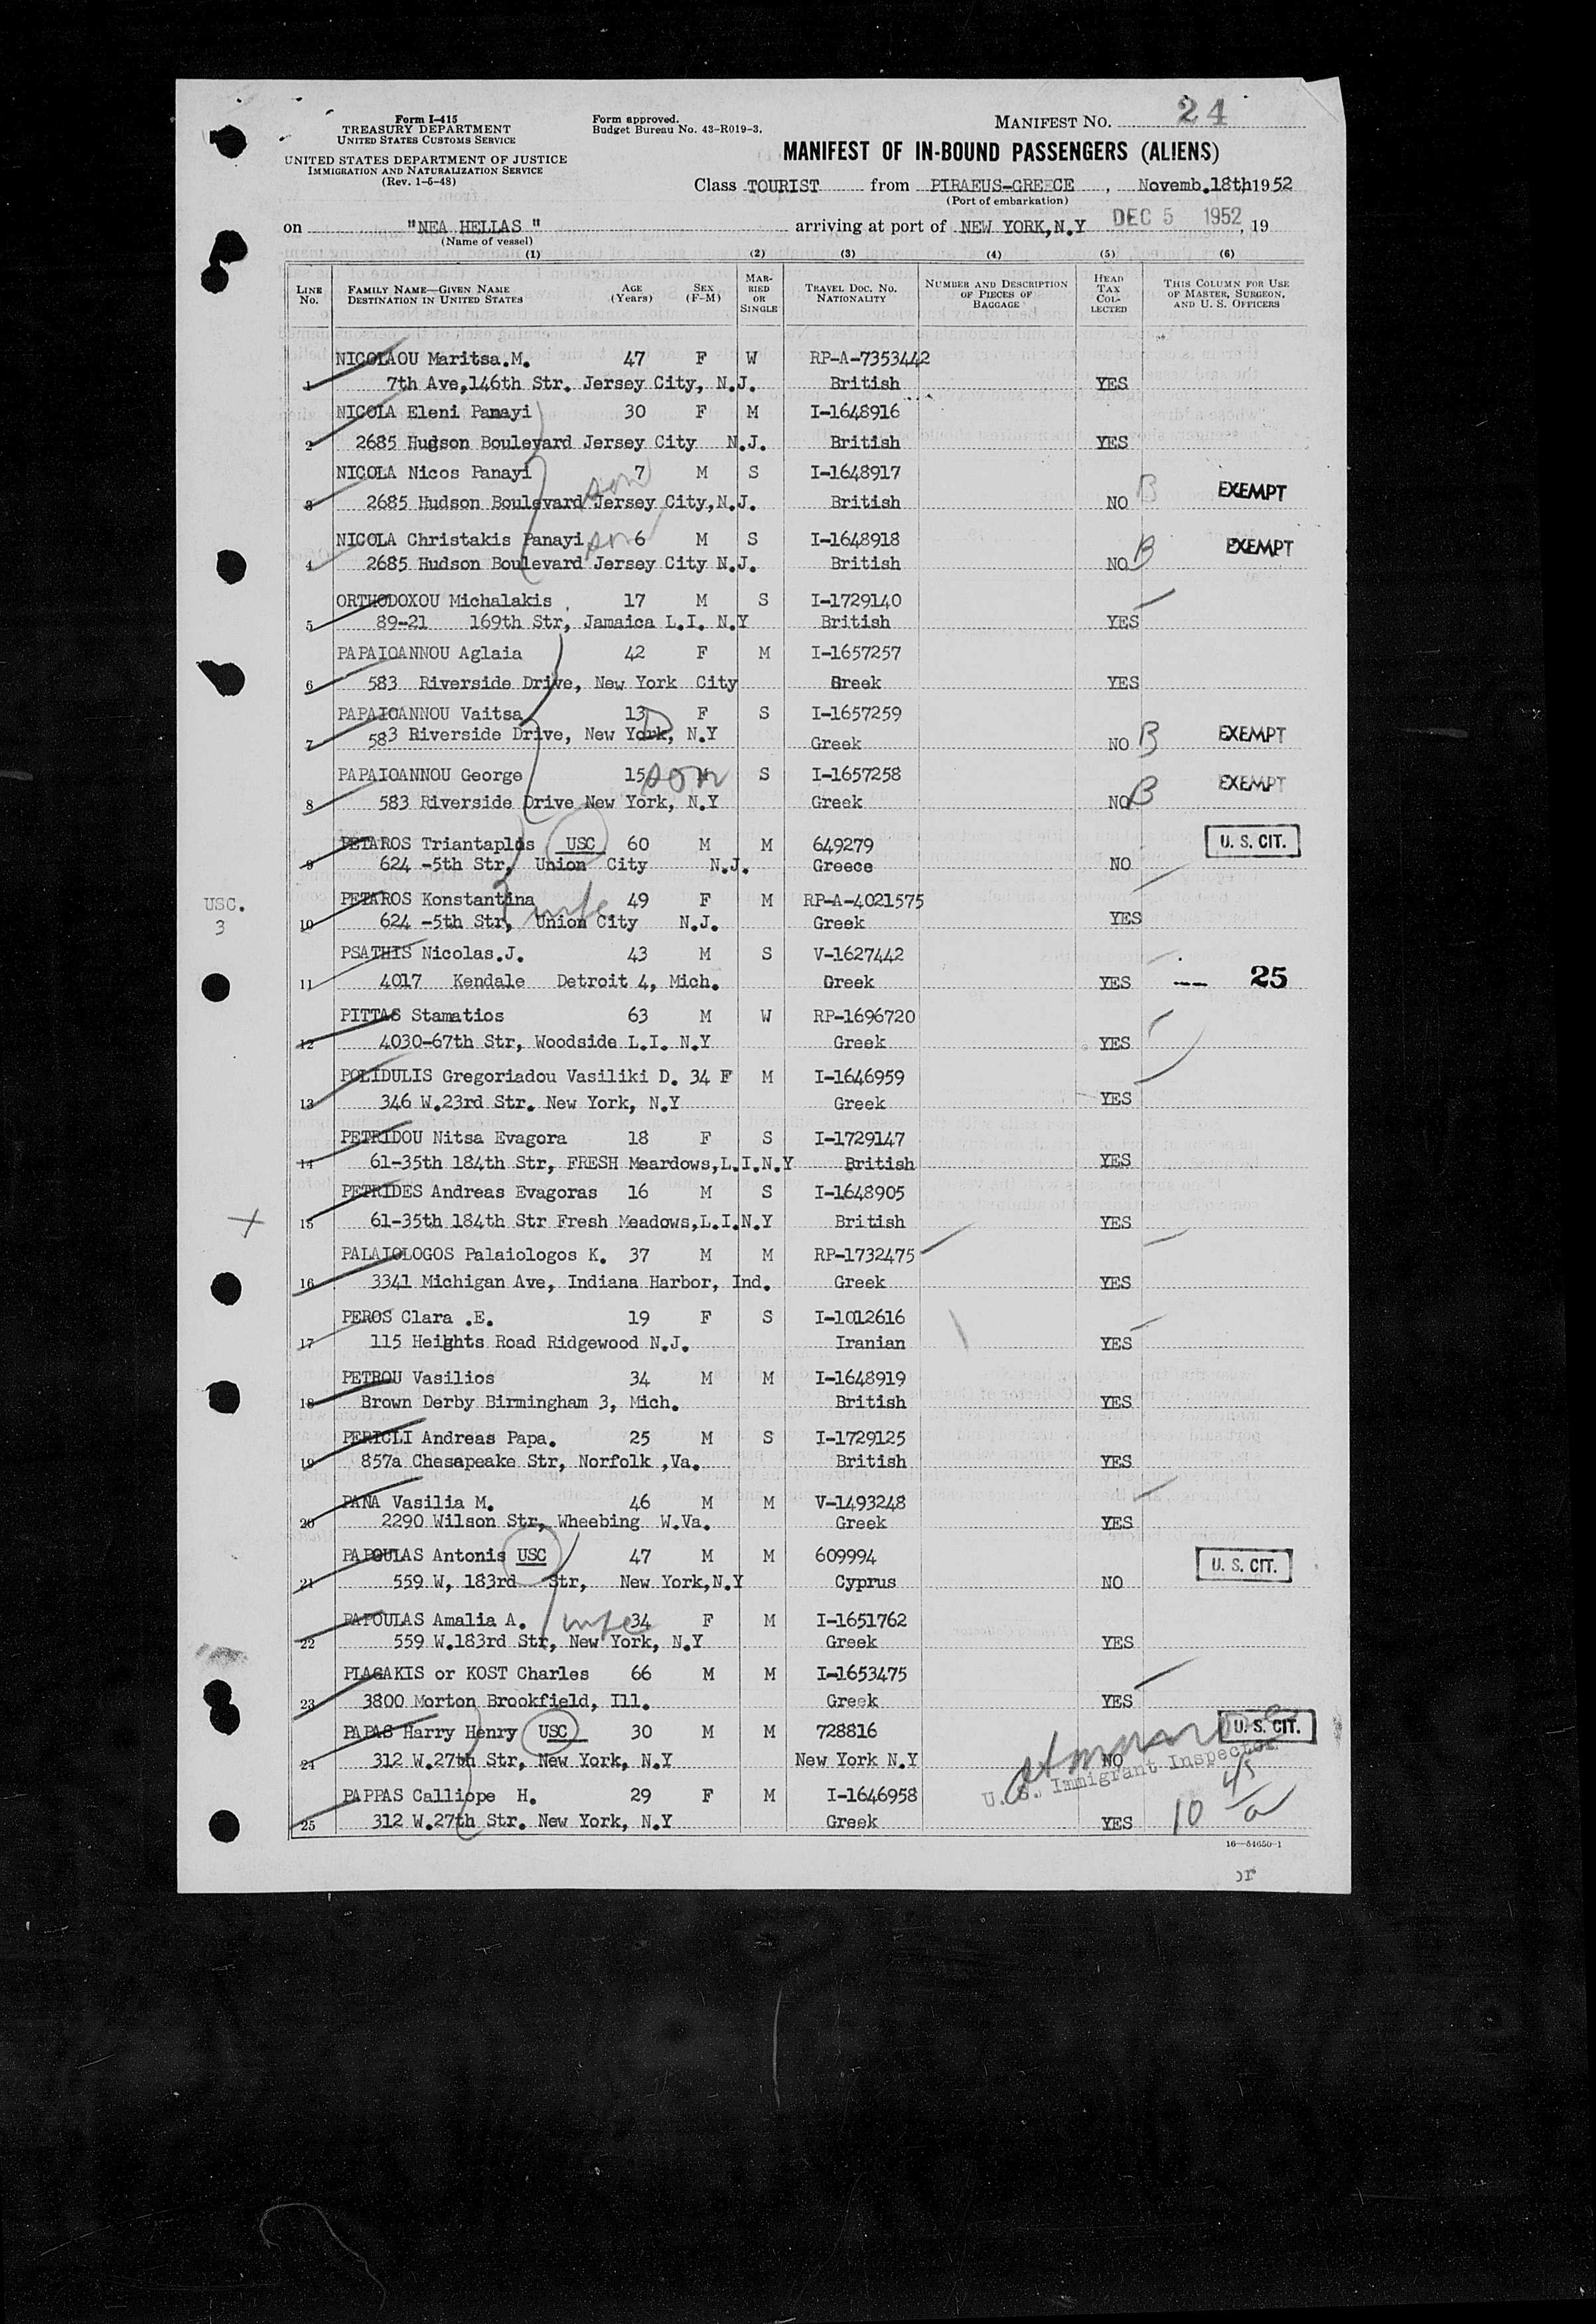 Form I-415
TREASURY DEPARTMENT
UNITED STATES CUSTOMS SERVICE
UNITED STATES DEPARTMENT OF JUSTICE
IMMIGRATION AND NATURALIZATION SERVICE
(Rev. 1-5-48)
Form approved.
Budget Bureau No. 43-R019-3.
MANIFEST NO. 24
MANIFEST OF IN-BOUND PASSENGERS (ALIENS)
Class TOURIST from PIRAEUS-GREECE , Novemb.18th1952
(Port of embarkation)
on "NEA HELLAS " arriving at port of NEW YORK,N.Y DEC 5 1952, 19
(Name of vessel)
(1) (2) (3) (4) (5) (6)
LINE No. FAMILY NAME—GIVEN NAME DESTINATION IN UNITED STATES AGE (Years) SEX (F-M) MARRIED OR SINGLE TRAVEL DOC. NO. NATIONALITY NUMBER AND DESCRIPTION OF PIECES OF BAGGAGE HEAD TAX COLLECTED THIS COLUMN FOR USE OF MASTER, SURGEON, AND U. S. OFFICERS
NICOLAOU Maritsa.M. 47 F W RP-A-7353442
1 7th Ave,146th Str. Jersey City, N.J. British YES
NICOLA Eleni Panayi 30 F M I-1648916
2 2685 Hudson Boulevard Jersey City N.J. British YES
NICOLA Nicos Panayi 7 M S I-1648917
son
3 2685 Hudson Boulevard Jersey City,N.J. British NO B EXEMPT
NICOLA Christakis Panayi son 6 M S I-1648918
4 2685 Hudson Boulevard Jersey City N.J. British NO B EXEMPT
ORTHODOXOU Michalakis 17 M S I-1729140
5 89-21 169th Str, Jamaica L.I. N.Y British YES
PAPAIOANNOU Aglaia 42 F M I-1657257
6 583 Riverside Drive, New York City Greek YES
PAPAIOANNOU Vaitsa 13 F S I-1657259
D
7 583 Riverside Drive, New York, N.Y Greek NO B EXEMPT
PAPAIOANNOU George 15 son M S I-1657258
8 583 Riverside Drive New York, N.Y Greek NO B EXEMPT
PETAROS Triantaplos USC 60 M M 649279 U. S. CIT.
9 624 -5th Str, Union City N.J. Greece NO
USC. 3
PETAROS Konstantina wife 49 F M RP-A-4021575
10 624 -5th Str, Union City N.J. Greek YES
PSATHIS Nicolas.J. 43 M S V-1627442
11 4017 Kendale Detroit 4, Mich. Greek YES -- 25
PITTAS Stamatios 63 M W RP-1696720
12 4030-67th Str, Woodside L.I. N.Y Greek YES
POLIDULIS Gregoriadou Vasiliki D. 34 F M I-1646959
13 346 W.23rd Str. New York, N.Y Greek YES
PETRIDOU Nitsa Evagora 18 F S I-1729147
14 61-35th 184th Str, FRESH Meardows,L.I.N.Y British YES
PETRIDES Andreas Evagoras 16 M S I-1648905
15 61-35th 184th Str Fresh Meadows,L.I.N.Y British YES
PALAIOLOGOS Palaiologos K. 37 M M RP-1732475
16 3341 Michigan Ave, Indiana Harbor, Ind. Greek YES
PEROS Clara .E. 19 F S I-1012616
17 115 Heights Road Ridgewood N.J. Iranian YES
PETROU Vasilios 34 M M I-1648919
18 Brown Derby Birmingham 3, Mich. British YES
PERICLI Andreas Papa. 25 M S I-1729125
19 857a Chesapeake Str, Norfolk ,Va. British YES
PANA Vasilia M. 46 M M V-1493248
20 2290 Wilson Str, Wheebing W.Va. Greek YES
PAPOULAS Antonis USC 47 M M 609994 U. S. CIT.
21 559 W, 183rd Str, New York,N.Y Cyprus NO
PAPOULAS Amalia A. wife 34 F M I-1651762
22 559 W.183rd Str, New York, N.Y Greek YES
PLAGAKIS or KOST Charles 66 M M I-1653475
23 3800 Morton Brookfield, Ill. Greek YES
PAPAS Harry Henry USC 30 M M 728816 U. S. CIT.
24 312 W.27th Str, New York, N.Y New York N.Y NO
U. S. Immigrant Inspector
PAPPAS Calliope H. 29 F M I-1646958
25 312 W.27th Str. New York, N.Y Greek YES 10 45/a
16—54650-1